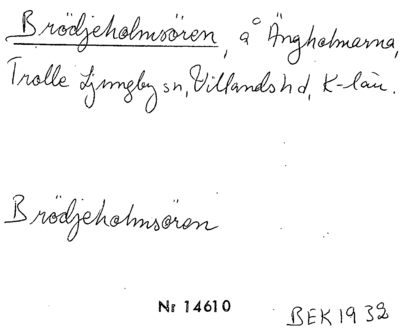 Brödjeholmsören, å Ängholmarna,
Trolle Ljungby sn, Villands hd, K-län.
Brödjeholmsören
Nr 14610
BEK 1932